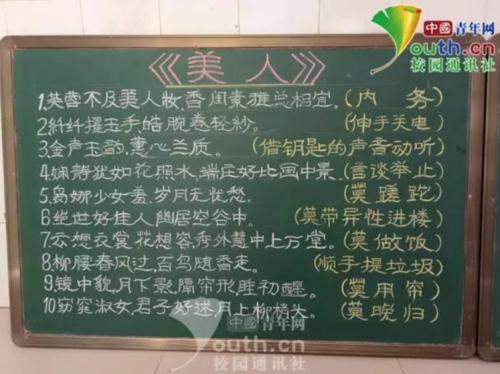 中國青年网
Youth.cn
校园通讯社
《美人》
1.芙蓉不及美人妆,香闺素雅总相宜。(内务)
2.纤纤擢玉手,皓腕卷轻纱。(伸手关电)
3.金声玉韵,蕙心兰质。(借钥匙的声音动听)
4.娴静犹如花照水,端庄好比画中景。(言谈举止)
5.袅娜少女羞,岁月无忧愁。(莫蹉跎)
6.绝世好佳人,幽居空谷中。(莫带异性进楼)
7.云想衣裳花想容,秀外慧中上厅堂。(莫做饭)
8.柳腰春风过,百鸟随香走。(顺手提垃圾)
9.镜中貌,月下影,隔帘形胜初醒。(莫用帘)
10.窈窕淑女,君子好逑,月上柳梢头。(莫晚归)
中國青年网
Youth.cn
校园通讯社